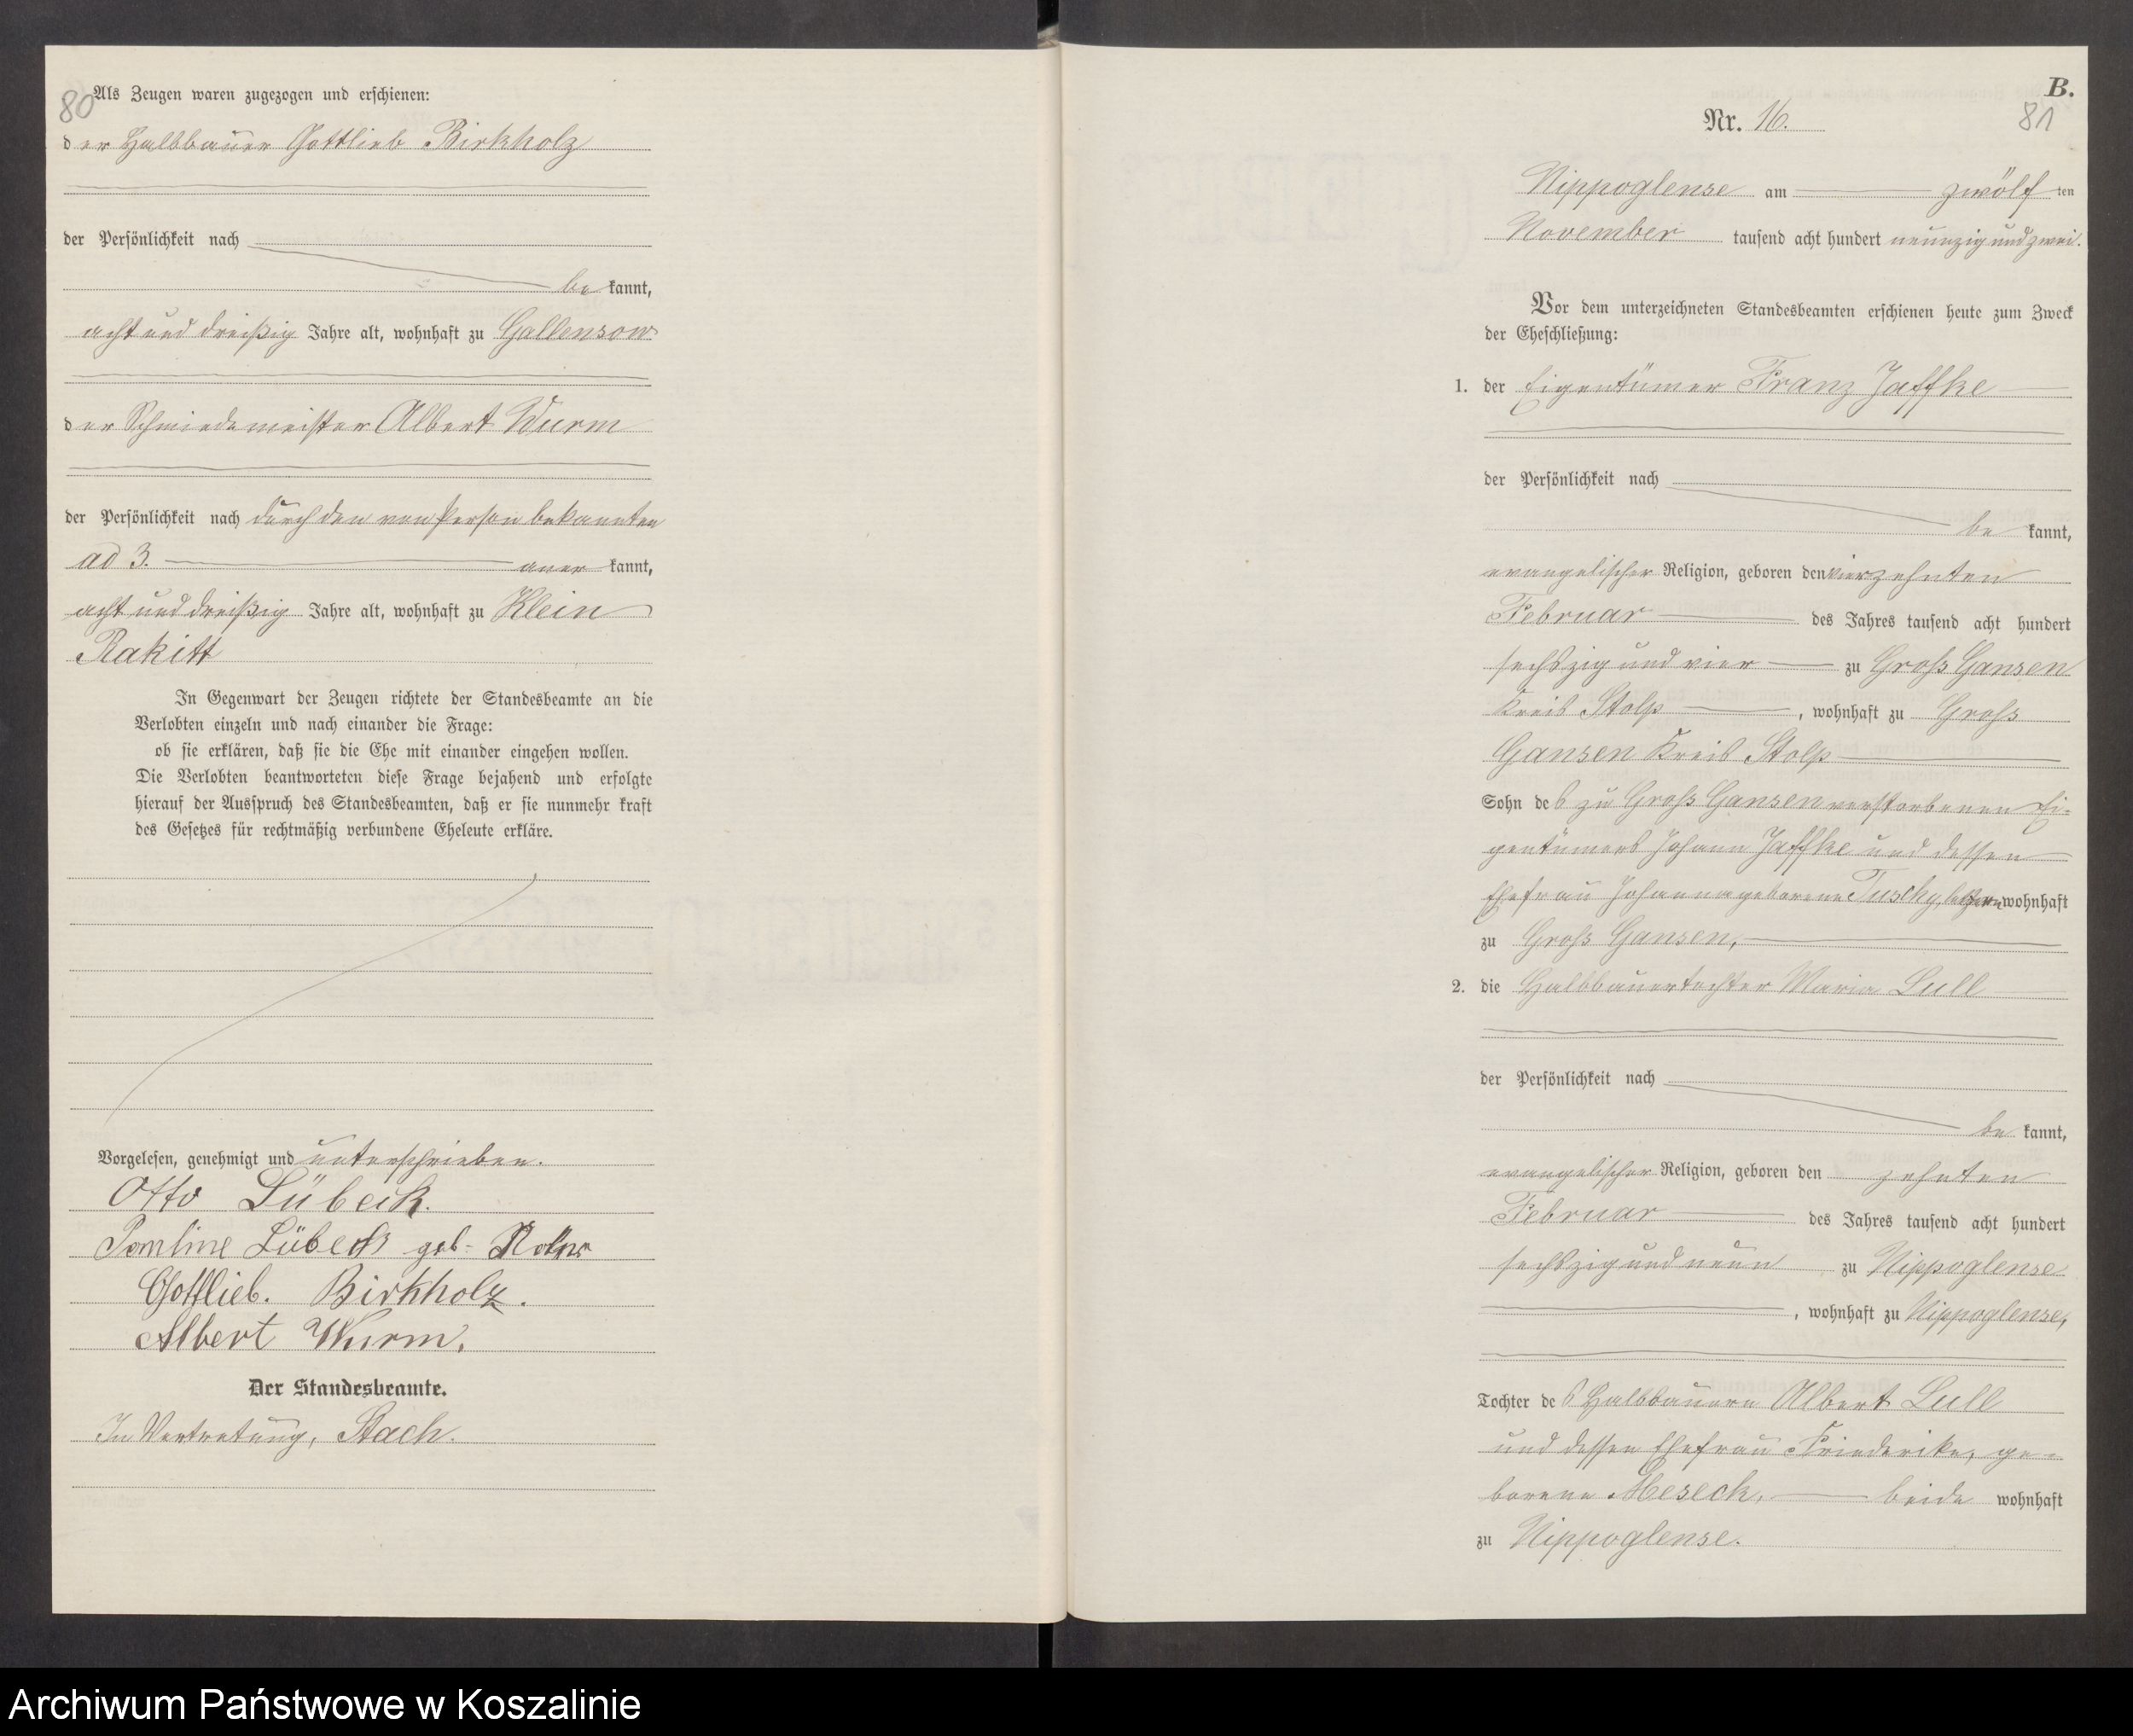 80
Als Zeugen waren zugezogen und erschienen:
der Halbbauer Gottlieb Birkholz
der Persönlichkeit nach
be kannt,
acht und dreißig Jahre alt, wohnhaft zu Gallensow
der Schmiedemeister Albert Wurm
der Persönlichkeit nach durch den von Person bekannten
ad 3. aner kannt,
acht und dreißig Jahre alt, wohnhaft zu Klein
Rakitt
In Gegenwart der Zeugen richtete der Standesbeamte an die
Verlobten einzeln und nach einander die Frage:
ob sie erklären, daß sie die Ehe mit einander eingehen wollen.
Die Verlobten beantworteten diese Frage bejahend und erfolgte
hierauf der Ausspruch des Standesbeamten, daß er sie nunmehr kraft
des Gesetzes für rechtmäßig verbundene Eheleute erkläre.
Vorgelesen, genehmigt und unterschrieben.
Otto Lübeck.
Pauline Lübeck geb.
Gottlieb. Birkholz.
Albert Wurm.
Der Standesbeamte.
In Vertretung, Stach.
B.
81
Nr. 16.
Nippoglense am zwölf ten
November tausend acht hundert neunzig und zwei.
Vor dem unterzeichneten Standesbeamten erschienen heute zum Zweck
der Eheschließung:
1. der Eigentümer Franz Jaffke
der Persönlichkeit nach
be kannt,
evangelischer Religion, geboren den vierzehnten
Februar des Jahres tausend acht hundert
sechszig und vier zu Groß Gansen
Kreis Stolp, wohnhaft zu Groß
Gansen Kreis Stolp
Sohn des zu Groß Gansen verstorbenen Ei-
gentümers Johann Jaffke und dessen
Ehefrau Johanna geborene Tuschy, wohnhaft
zu Groß Gansen,
2. die Halbbauertochter Maria Lull
der Persönlichkeit nach
be kannt,
evangelischer Religion, geboren den zehnten
Februar des Jahres tausend acht hundert
sechszig und neun zu Nippoglense
, wohnhaft zu Nippoglense,
Tochter des Halbbauern Albert Lull
und dessen Ehefrau Friederike, ge-
borene Meseck, beide wohnhaft
zu Nippoglense.
Archiwum Państwowe w Koszalinie